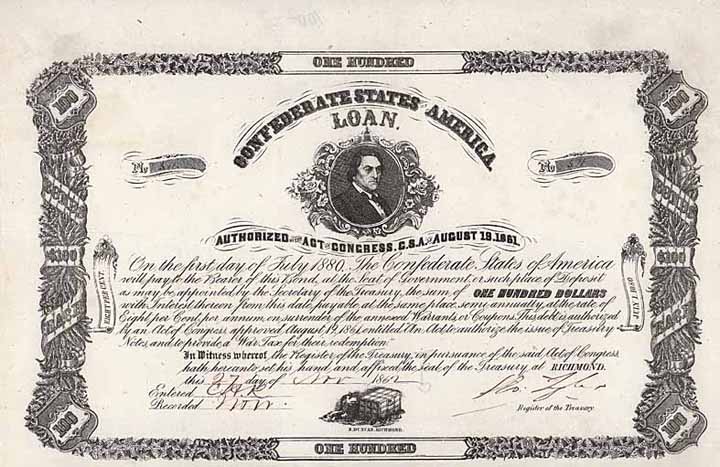 ONE HUNDRED
100
100
CONFEDERATE STATES OF AMERICA
LOAN.
No
No
AUTHORIZED BY THE ACT OF CONGRESS, C.S.A. OF AUGUST 19, 1861.
$100
$100
EIGHT PER CENT.
JULY 1, 1880
On the first day of July 1880, The Confederate States of America
will pay to the Bearer of this Bond, at the Seat of Government, or such place of Deposit
as may be appointed by the Secretary of the Treasury, the sum of ONE HUNDRED DOLLARS
with Interest thereon from this date, payable at the same place semi annually, at the rate of
Eight per Cent. per annum, on surrender of the annexed Warrants, or Coupons. This debt is authorized
by an Act of Congress approved August 19, 1861 entitled An Act to authorize the issue of Treasury
Notes, and to provide a War Tax for their redemption."
In Witness whereof, the Register of the Treasury, in pursuance of the said Act of Congress,
hath hereunto set his hand, and affixed the seal of the Treasury at RICHMOND.
this day of Nov 1862
Entered
Recorded
Register of the Treasury
B. DUNCAN, RICHMOND.
100
100
ONE HUNDRED